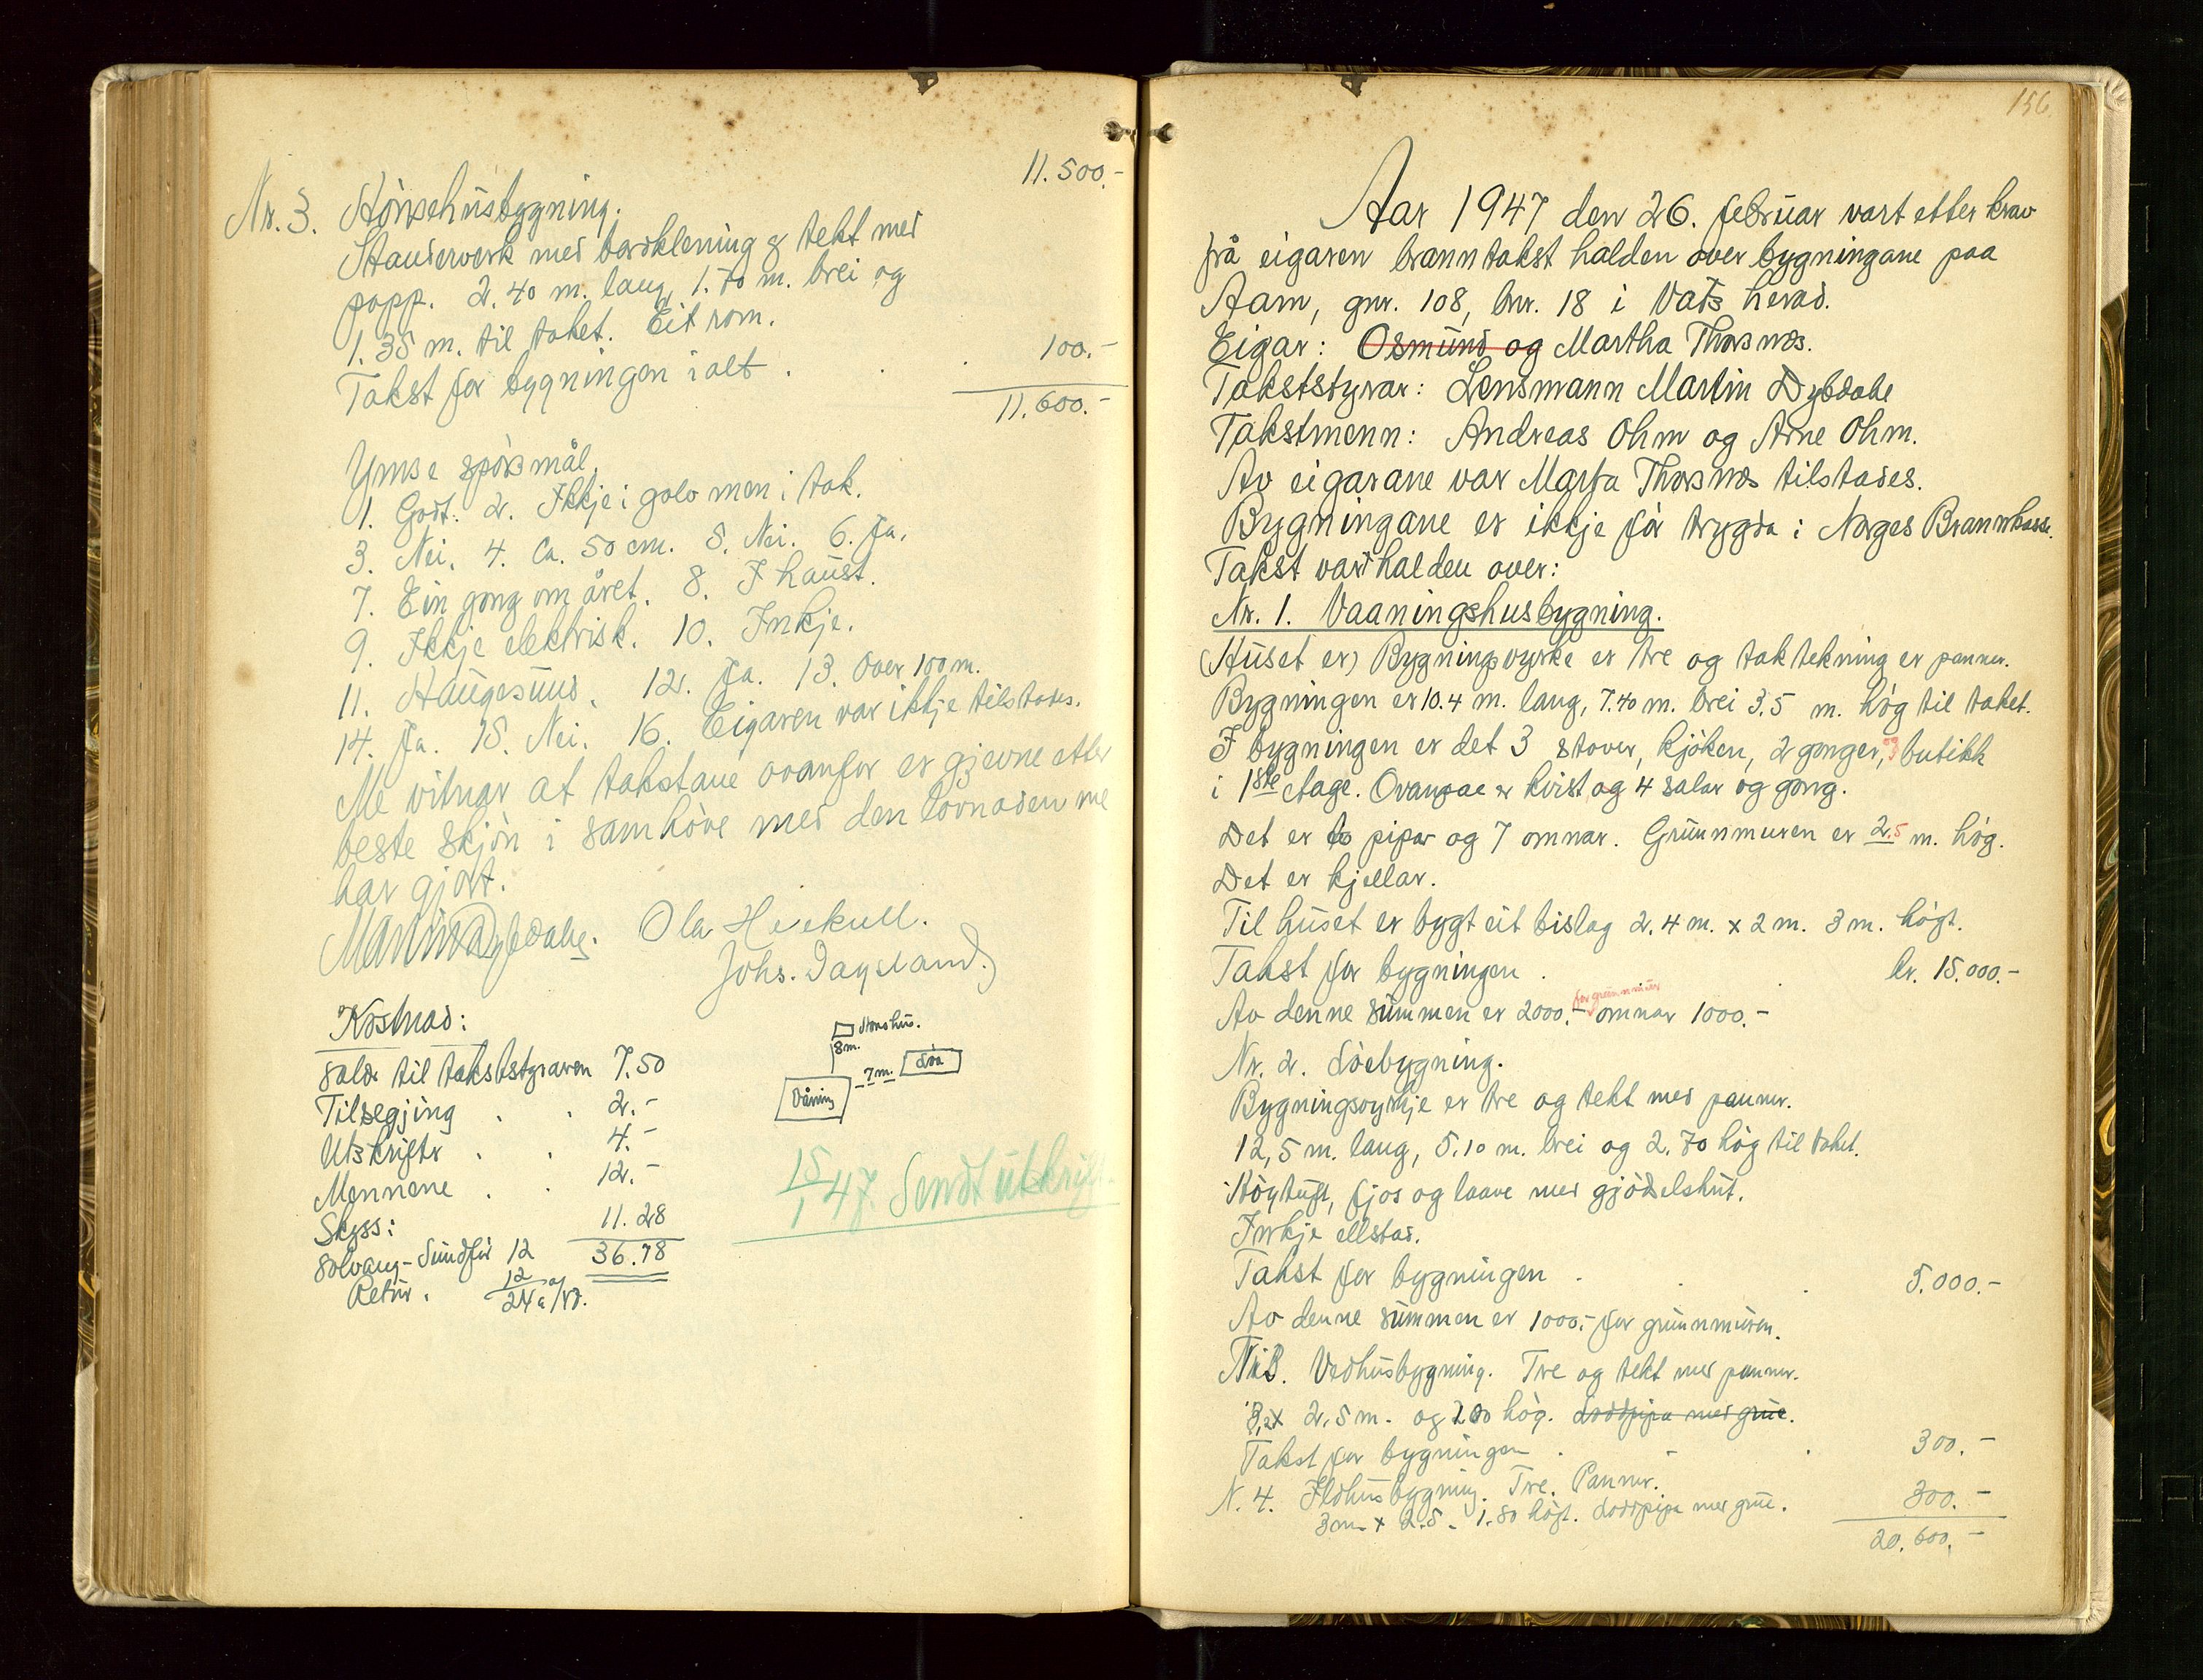 11.500.-
Nr. 3. Hönsehusbygning.
Stenderverk med bordklening & tekt med
papp. 2.40 m. lang, 1.70 m. brei og
1.35 m. til taket. Eit rom.
Takst for bygningen i alt . . . 100.-
11.600.-
Ymse spörsmål.
1. Godt. 2. Ikkje i golv men i tak.
3. Nei. 4. Ca. 50 cm. 5. Nei. 6. Ja.
7. Ein gong om året. 8. I haust.
9. Ikkje elektrisk. 10. Inkje.
11. Haugesund. 12. Ja. 13. Over 100 m.
14. Ja. 15. Nei. 16. Eigaren var ikkje tilstades.
Me vitnar at takstane ovanfor er gjevne etter
beste skjön i samhöve med den lovnaden me
har gjort.
Martin Dybdahl. Ola Hiekull.
Johs. Dagsland.
Kostnad:
Dald til takststyraren 7.50
Tilsegjing . . 2.-
Utskrifter . . 4.-
Mennene . . 12.-
Skyss: 11.28
Solvang-Sundför 12 36.78
Retur. 12
24 a/47 ø.
Hönsehus.
8 m.
7 m. Löa
Våning
15/1 47. Sendt utskrift.
156
Aar 1947 den 26. februar vart etter krav
frå eigaren branntakst halden over bygningane paa
Aam, gnr. 108, bnr. 18 i Vats herad.
Eigar: Osmund og Martha Thorsnæs.
Takststyrar: Lensmann Martin Dybdahl
Takstmenn: Andreas Ohm og Arne Ohm.
Av eigarane var Marta Thorsnæs tilstades.
Bygningane er ikkje för trygda i Norges Brannkasse.
Takst vart halden over:
Nr. 1. Vaaningshusbygning.
(Huset er) Bygningsvyrke er tre og taktekning er panner.
Bygningen er 10.4 m. lang, 7.40 m. brei 3.5 m. hög til taket.
I bygningen er det 3 stover, kjöken, 2 gonger, og butikk
i 1ste etage. Ovanpae er kvist og 4 salar og gong.
Det er to pipar og 7 omnar. Grunnmuren er 2.5 m. hög.
Det er kjellar.
Til huset er bygt eit bislag 2.4 m. x 2 m. 3 m. högt.
Takst for bygningen . . kr. 15.000.-
Av denne summen er 2000.- for grunnmur omnar 1000.-
Nr. 2. Löebygning.
Bygningsvyrkje er tre og tekt med panner.
12,5 m. lang, 5.10 m. brei og 2.70 hög til taket.
Höytuft, fjos og laave med gjödselshus.
Inkje ellstad.
Takst for bygningen . . . 5.000.-
Av denne summen er 1000.- for grunnmuren.
Nr 3. Vedhusbygning. Tre og tekt med panner.
3,2 x 2.5 m. og 2.00 hög. Loddpipa med grue.
Takst for bygningen . . . 300.-
N. 4. Ildhusbygning. Tre. Panner.
3 m. x 2.5. 1.80 högt. Loddpipa med grue. 300.-
20.600.-